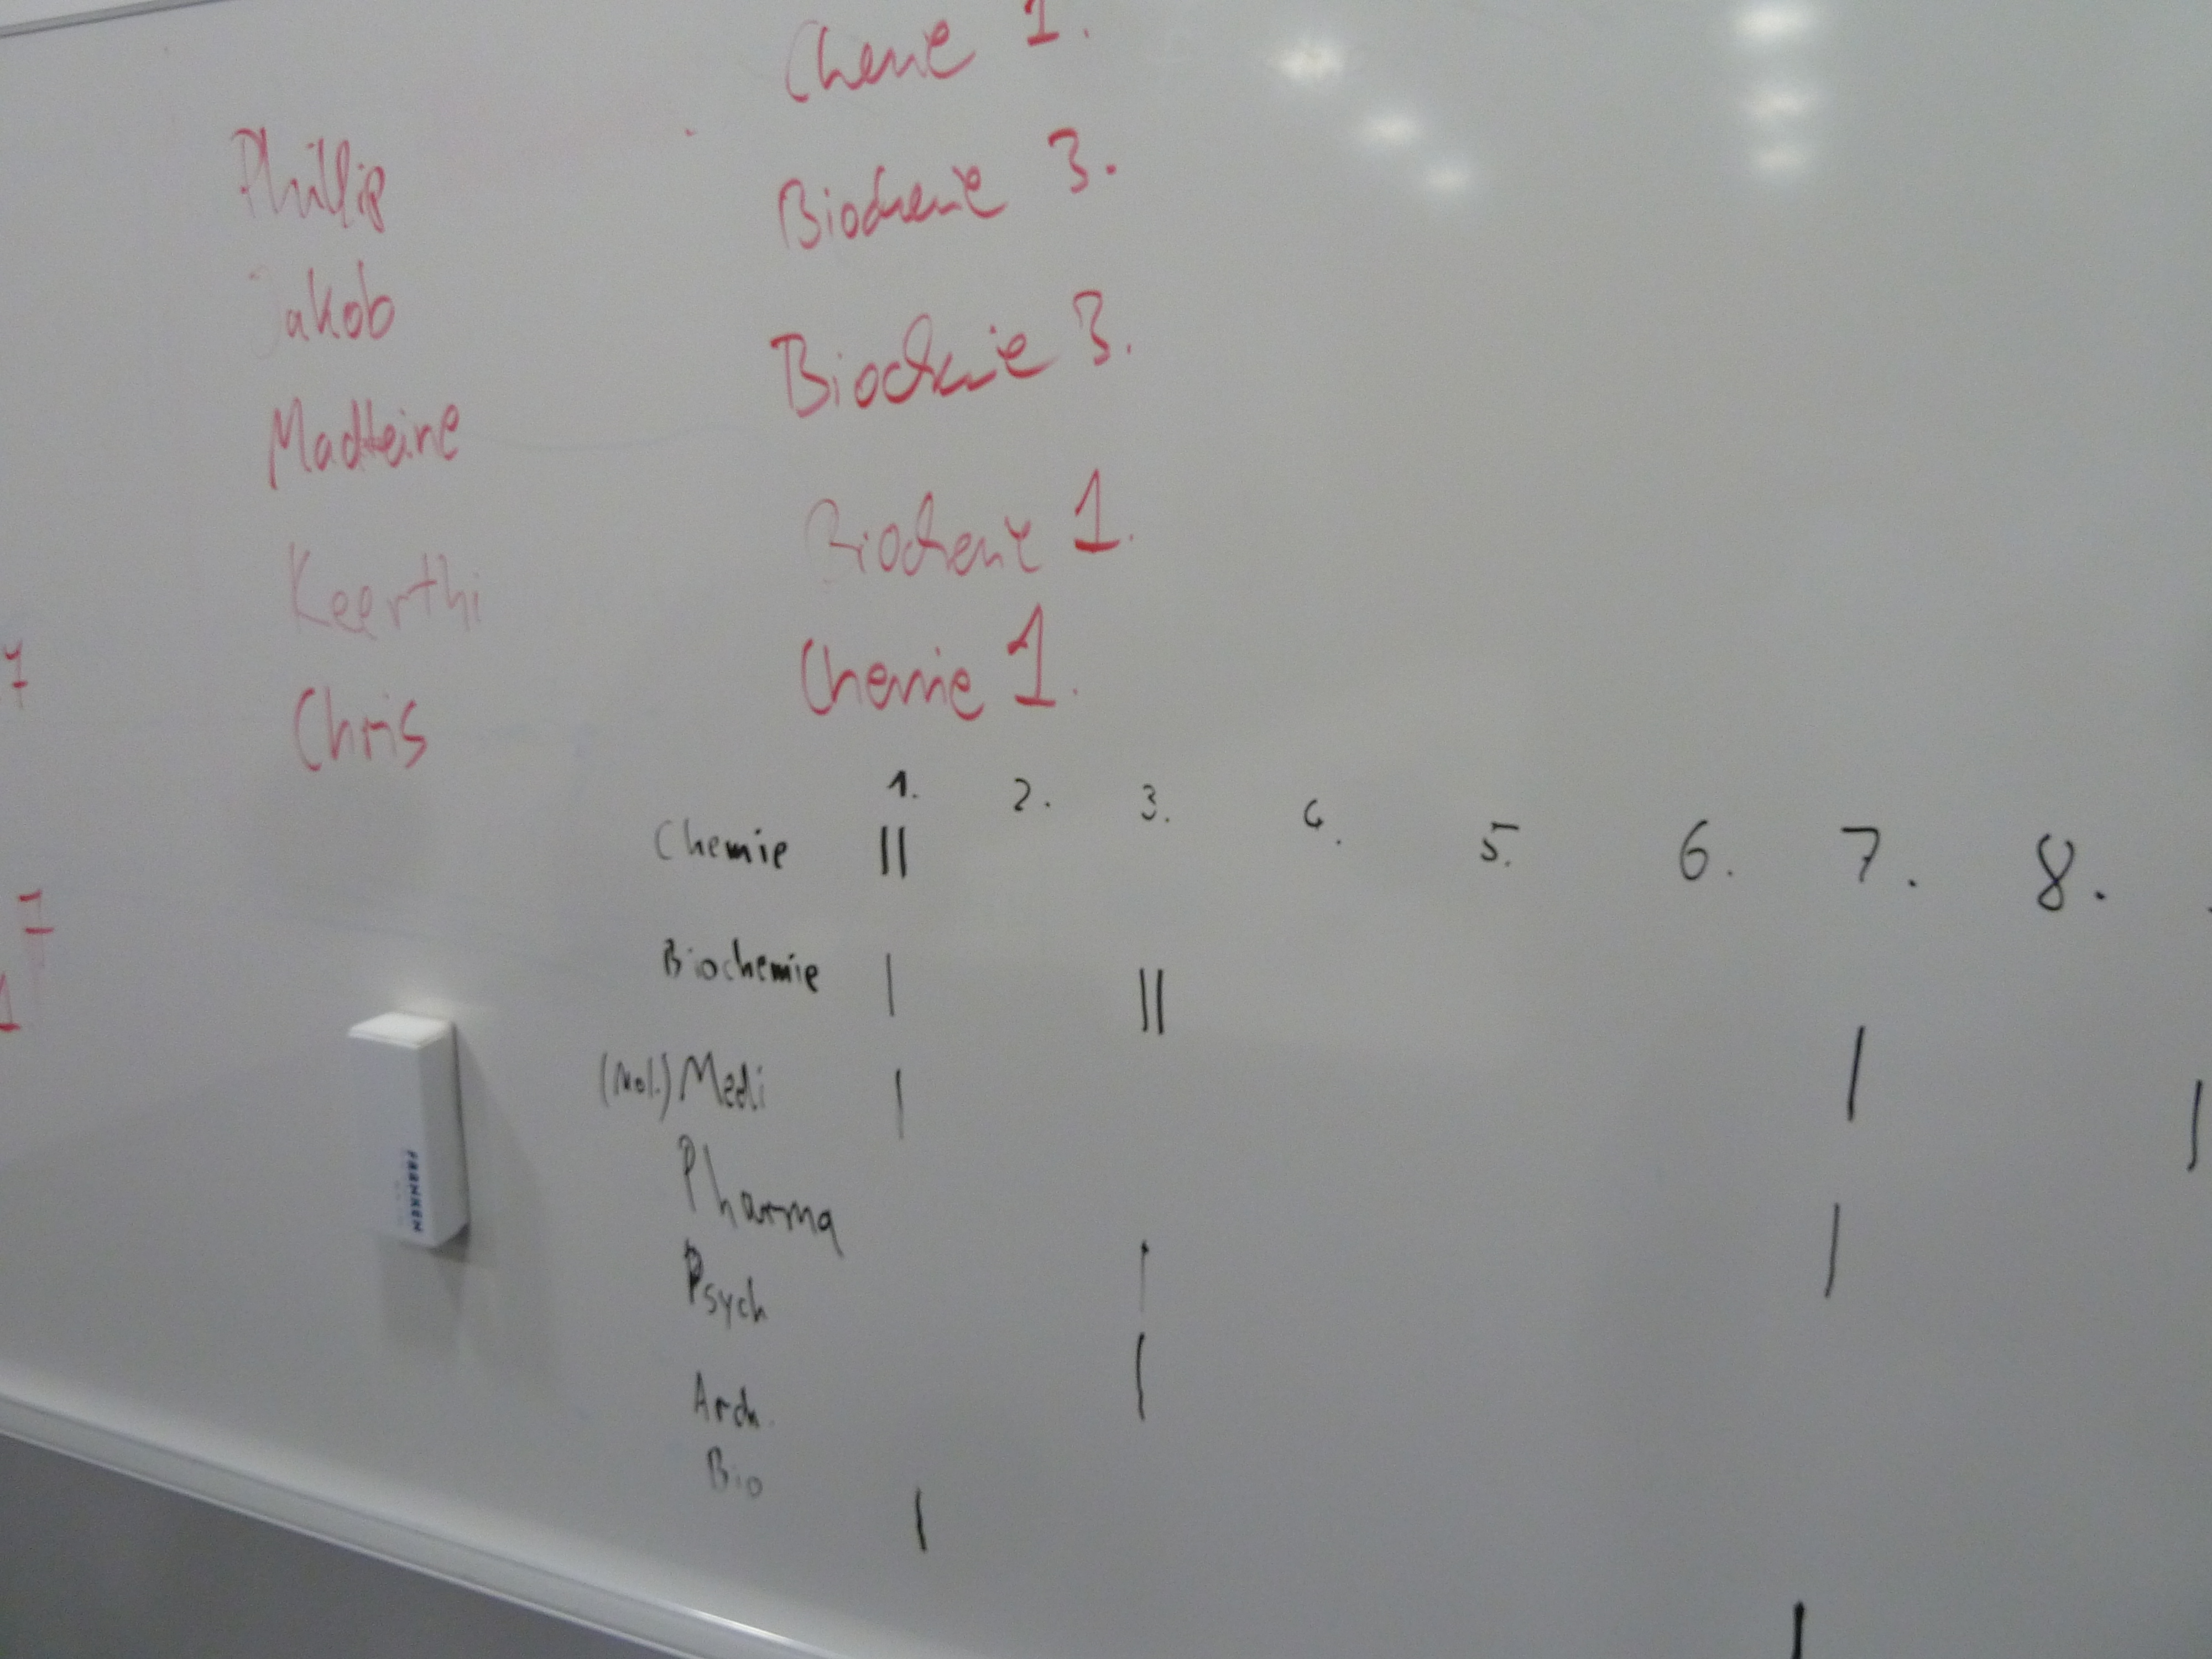 Chemie 1.
Phillip Biochemie 3.
Jakob Biochemie 3.
Madleine Biochemie 1.
Keerthi Chemie 1.
Chris
1. 2. 3. 4. 5. 6. 7. 8.
Chemie II
Biochemie I II
(Mol.) Medi I I I
Pharma I
Psych I
Arch. I
Bio I
I
FRANKEN